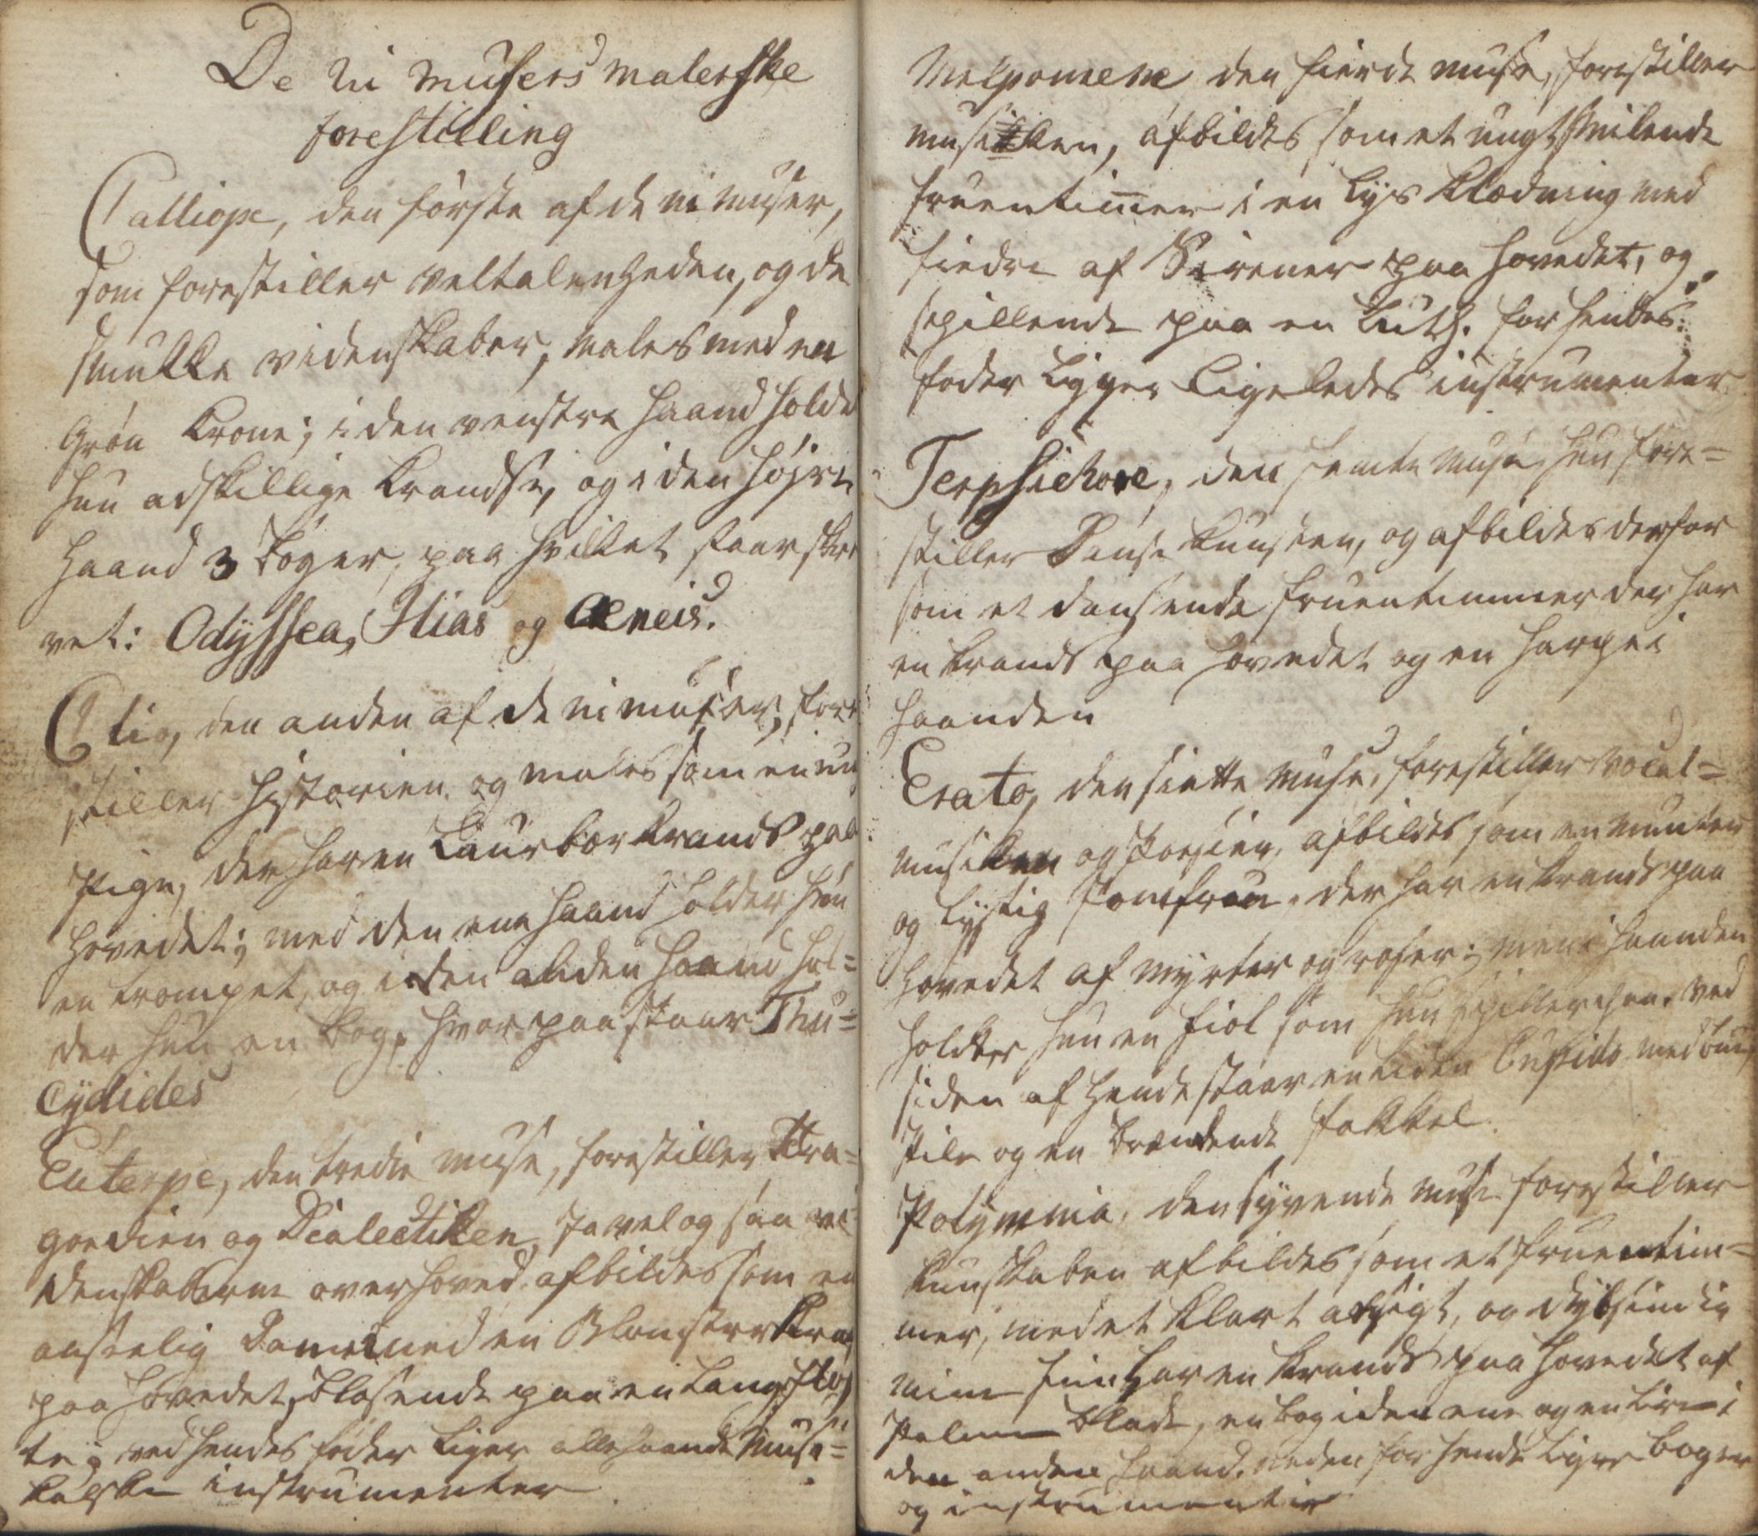 De ni Musers malerske
forestilling
Calliope, den første af de ni Muser,
som forestiller Veltalenheden, og de
smukke videnskaber, males med en
Grøn Krone; i den venstre haand holder
hun adskillige Krandse, og i den højre
Haand 3 bøger, paa hvilket staar skre
vet: Odÿssea, Ilias og Æneis.
Clio, den anden af de ni muser, fore
stiller historien og males som en ung
Pige, der har en Laurbær Krands paa
hovedet; med den ene haand holder hun
en trompet, og i den anden haand hol=
der hun en Bog, hvorpaa staar Thu=
cÿdides
Euterpe, den tredie muse, forestiller Tra=
goedien og Dialectiken, saavel og saa vi
denskaberne overhoved. afbildes som en
anseelig Dame med en Blomster Krands
paa hovedet, blæsende paa en Lang fløj
te; ved hendes føder liger allehaande Musi=
kalske instrumenter
Melpomene den fierde muse, forestiller
musikken, afbildes som et ungt smilende
fruentimer i en Lys Klædning med
fiedre af Sirener paa hovedet, og
spillende paa en Luth. for hendes
føder ligger ligeledes instrumenter
Terpsichore, den femte Muse, hun fore=
stiller Danse kunsten, og afbildes derfor
som et dansende fruentimmer der har
en krands paa hovedet og en harpe i
haanden
Erato, den siette Muse, forestiller Vocal=
musikken og Poesien, afbildes som en munter
og Lystig Jomfrue, der har en krands paa
hovedet af myrter og roser; men i haanden
holder hun en fiol som hun spiller paa. ved
siden af hende staar en liden Cupido med bue,
Pile og en brændende fakkel.
Polÿmnia, den syvende Muse forestiller
kunskaben afbildes som et fruentim=
mer, med et Klart ansigt, og dybsindig
mine hun har en krands paa hovedet af
Palme blade, en bog i den ene og en Lire i
den anden haand. neden for hende ligger bøger
og instrumenter